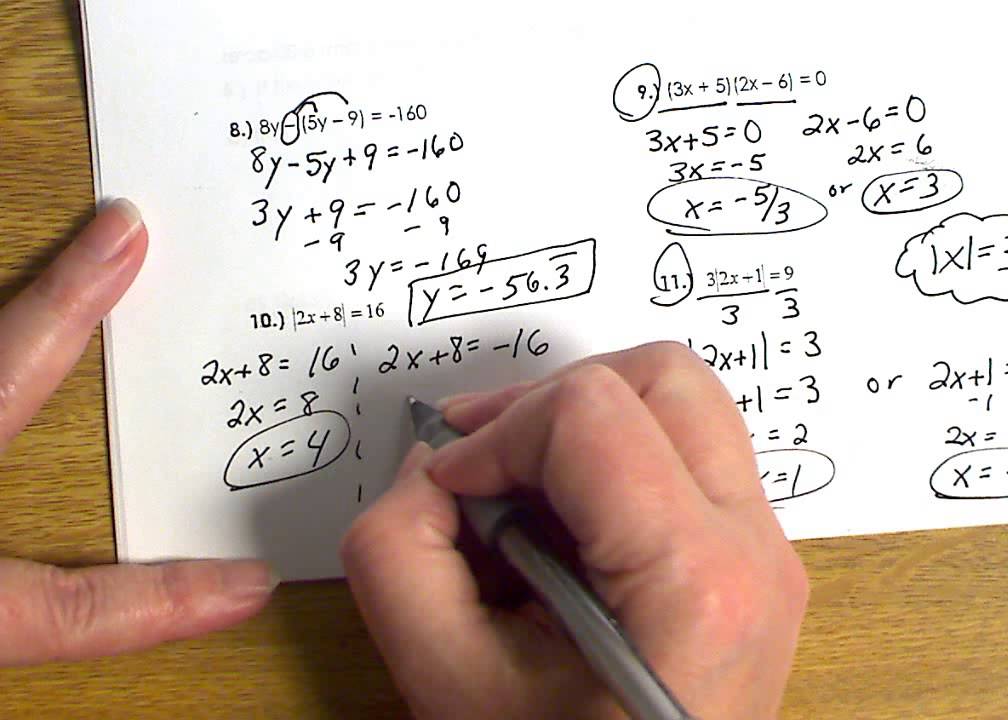 8.) 8y – (5y – 9) = -160
8y - 5y + 9 = -160
3y + 9 = -160
- 9 - 9
3y = -169
y = -56.3̅
9.) (3x + 5)(2x – 6) = 0
3x + 5 = 0
3x = -5
x = -5/3
or
2x - 6 = 0
2x = 6
x = 3
10.) |2x + 8| = 16
2x + 8 = 16
2x = 8
x = 4
2x + 8 = -16
11.) 3|2x + 1| = 9
3 3
2x+1| = 3
+1 = 3
= 2
=1
or
2x+1 =
-1
2x =
x =
|x| =